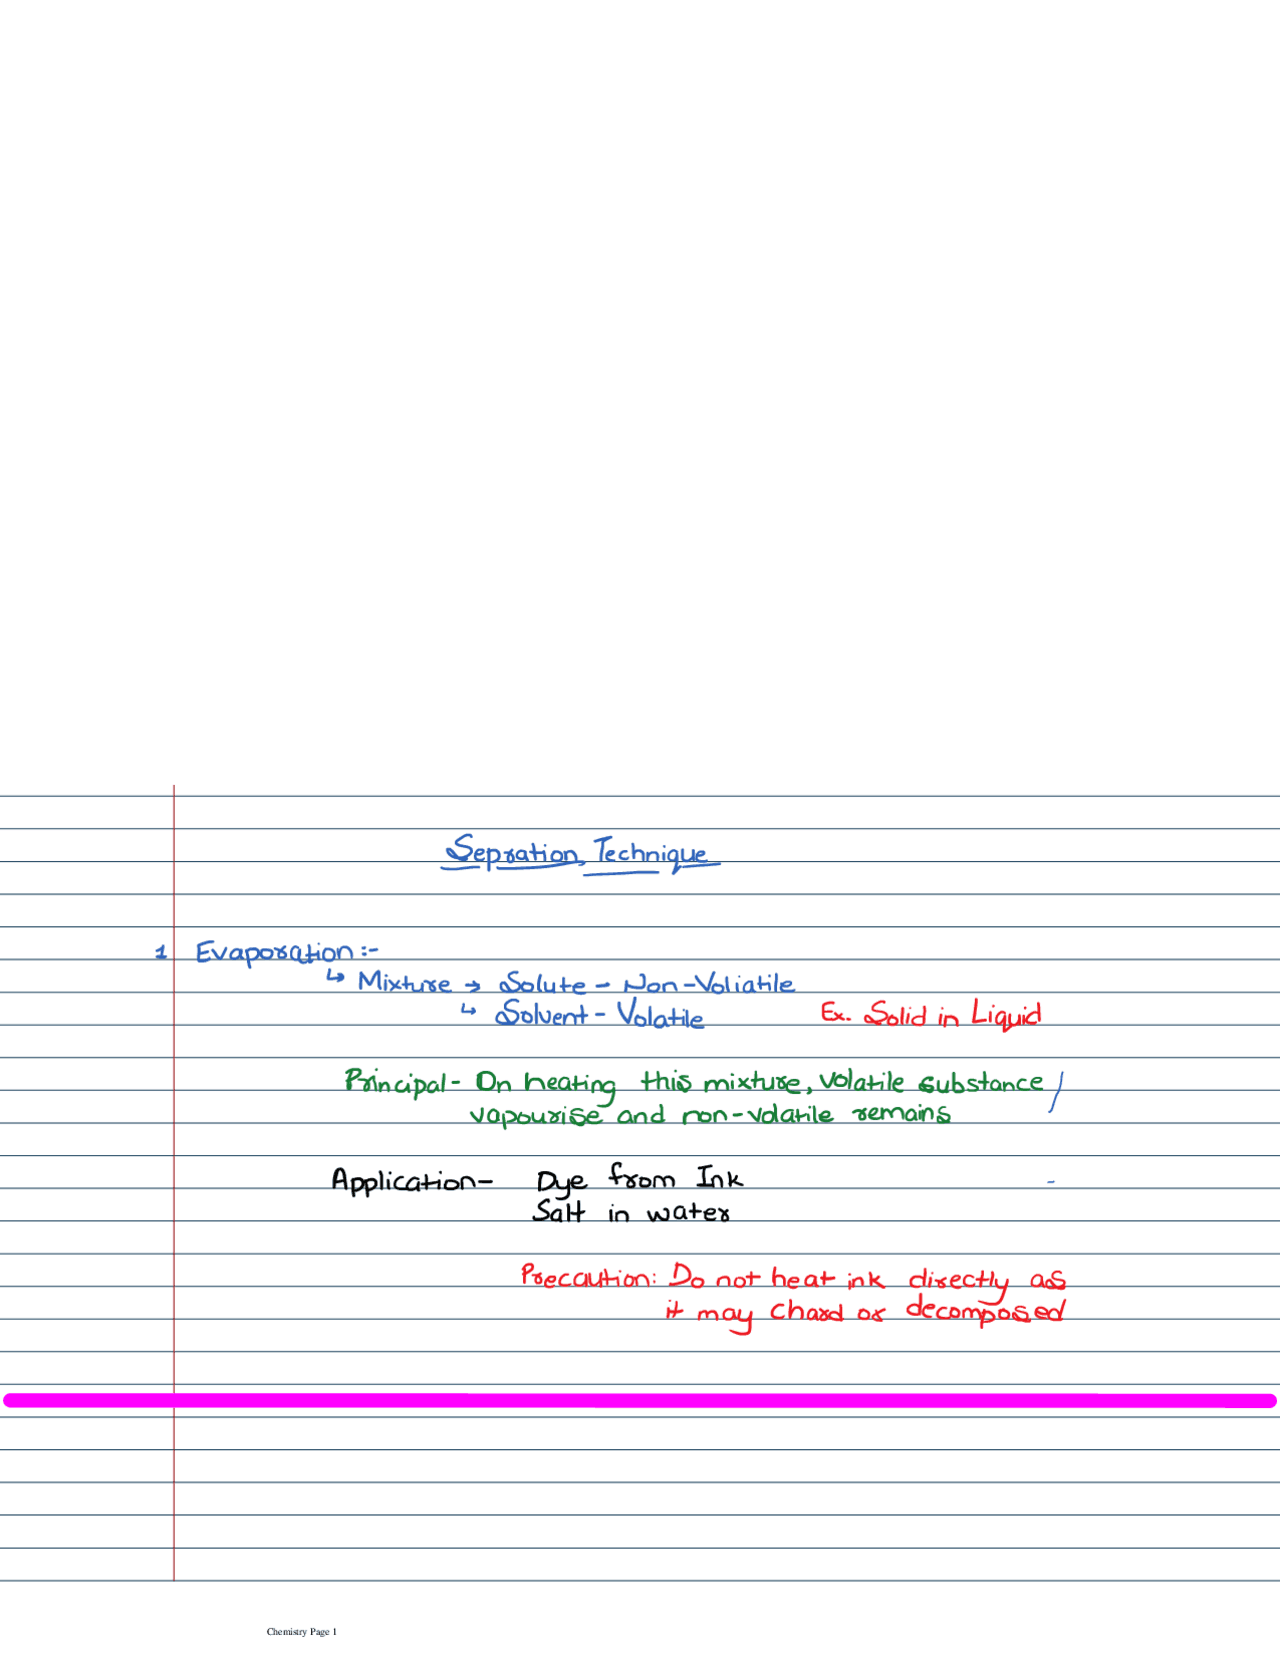 Sepration Technique
1 Evaporation :-
↳ Mixture → Solute - Non-Voliatile
↳ Solvent - Volatile Ex. Solid in Liquid
Principal - On heating this mixture, volatile substance
vapourise and non-volatile remains
Application - Dye from Ink
Salt in water
Precaution: Do not heat ink directly as
it may chard or decomposed
Chemistry Page 1